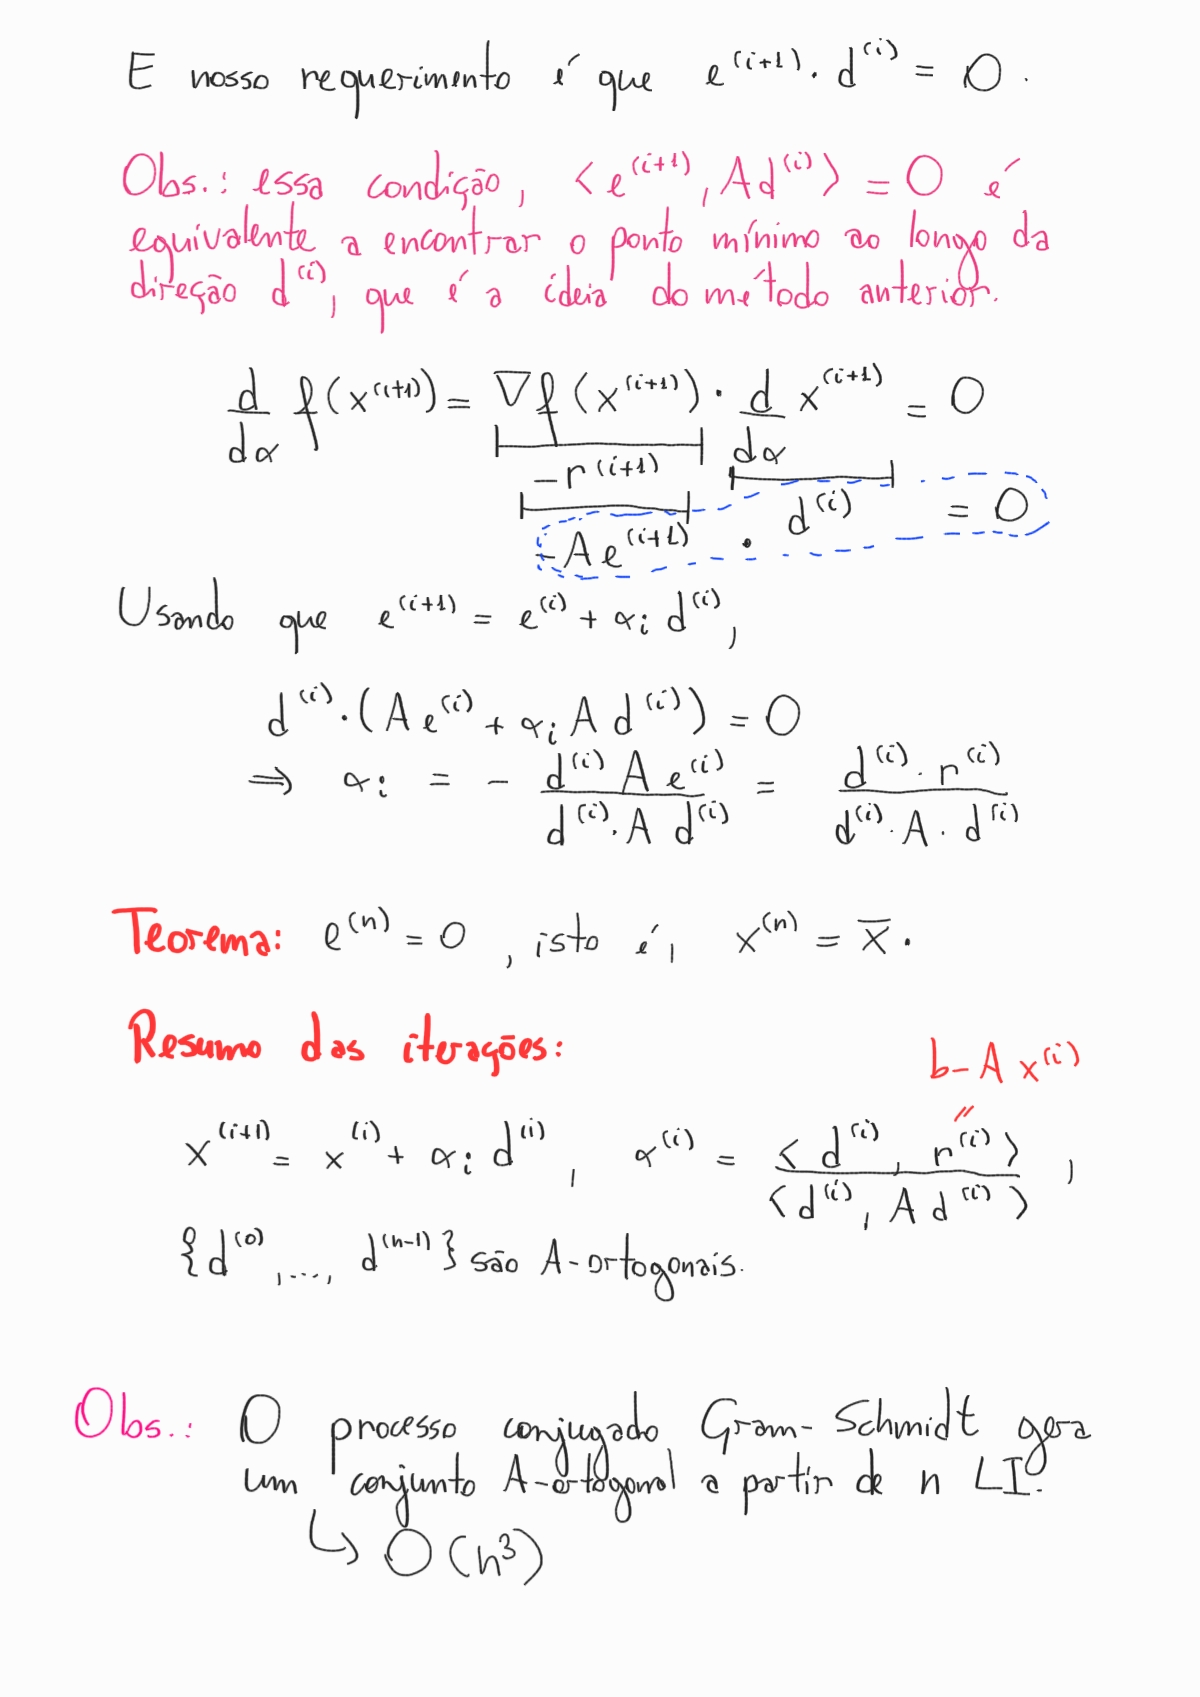 E nosso requerimento é que e^(i+1) · d^(i) = 0.
Obs.: essa condição, ⟨e^(i+1), Ad^(i)⟩ = 0 é
equivalente a encontrar o ponto mínimo ao longo da
direção d^(i), que é a ideia do método anterior.
d/dα f(x^(i+1)) = ∇f(x^(i+1)) · d/dα x^(i+1) = 0
-r^(i+1)
-Ae^(i+1) · d^(i) = 0
Usando que e^(i+1) = e^(i) + α_i d^(i),
d^(i)·(A e^(i) + α_i A d^(i)) = 0
⇒ α_i = - d^(i) A e^(i) / d^(i)·A d^(i) = d^(i)·r^(i) / d^(i)·A·d^(i)
Teorema: e^(n) = 0, isto é, x^(n) = x̅.
Resumo das iterações:
b-A x^(i)
"
x^(i+1) = x^(i) + α_i d^(i), α^(i) = ⟨d^(i), r^(i)⟩ / ⟨d^(i), A d^(i)⟩,
{d^(0),..., d^(n-1)} são A-ortogonais.
Obs.: O processo conjugado Gram-Schmidt gera
um conjunto A-ortogonal a partir de n LI.
↳ O(n³)